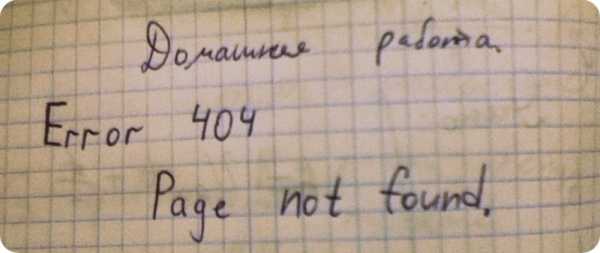 Домашняя работа.
Error 404
Page not found.